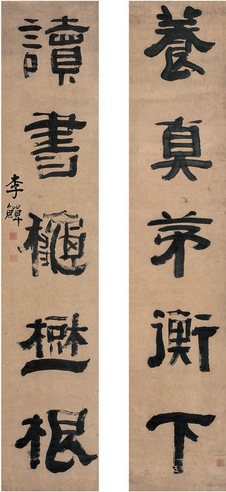 養真茅衡下
讀書穐樹根
李鱓